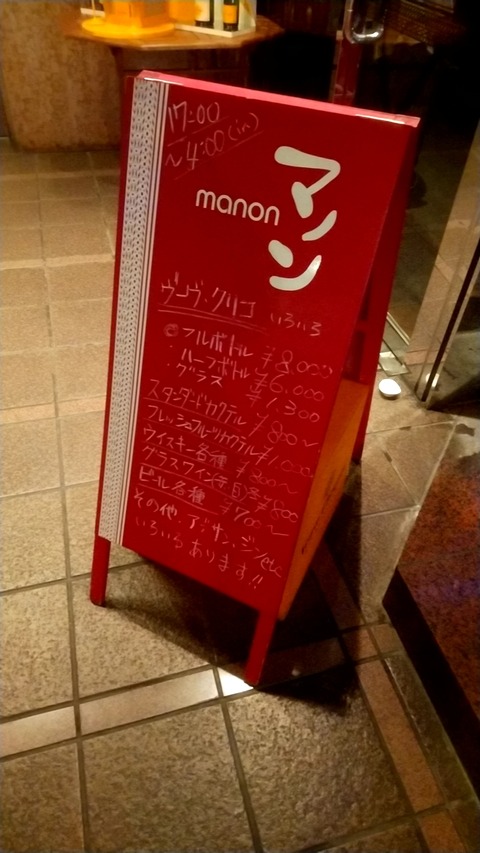 17:00
~4:00(in)
マノン
manon
ヴーヴ・クリコ いろいろ
◎フルボトル ¥8.000
・ハーフボトル ¥6.000
・グラス ¥1.300
スタンダードカクテル ¥800~
フレッシュフルーツカクテル ¥1.000~
ウイスキー各種 ¥800~
グラスワイン(赤)(白) 各¥800
ビール各種 ¥700~
その他・
いろいろあります!!